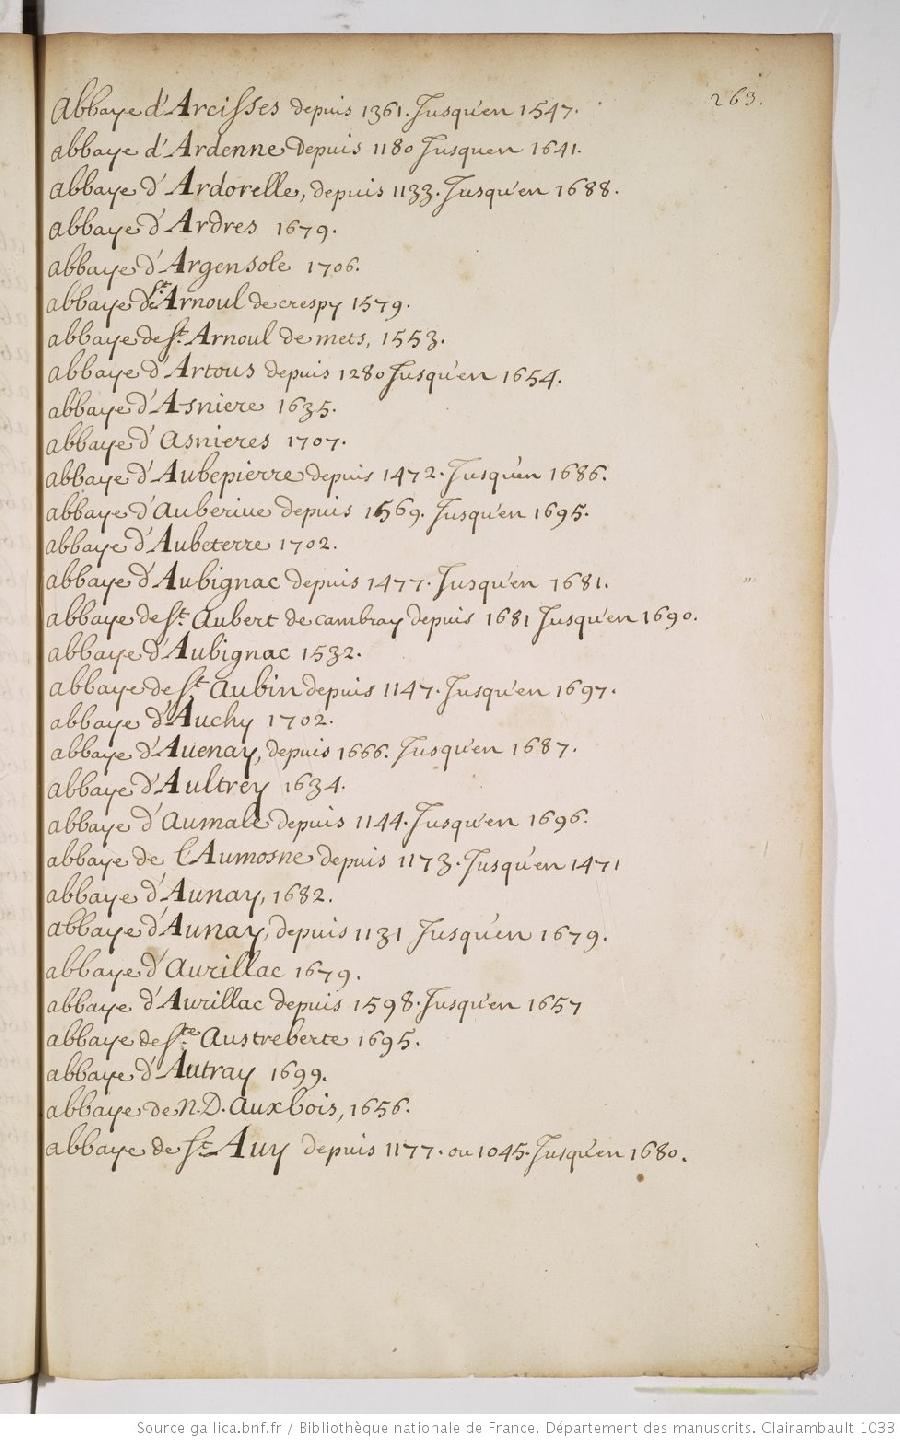 263.
Abbaye d'Arcisses depuis 1361. Jusqu'en 1547.
abbaye d'Ardenne depuis 1180 Jusquen 1641.
abbaye d'Ardorelle, depuis 1133. Jusqu'en 1688.
abbaye d'Ardres 1679.
abbaye d'Argensole 1706.
abbaye de St. Arnoul de crespy 1579.
abbaye de St. Arnoul de mets, 1553.
abbaye d'Artous depuis 1280 Jusqu'en 1654.
abbaye d'Asniere 1635.
abbaye d'asnieres 1707.
abbaye d'Aubepierre depuis 1472. Jusqu'en 1686.
abbaye d'auberiue depuis 1569. Jusqu'en 1695.
abbaye d'Aubeterre 1702.
abbaye d'Aubignac depuis 1477. Jusqu'en 1681.
abbaye de St. aubert de cambray depuis 1681 Jusqu'en 1690.
abbaye d'Aubignac 1532.
abbaye de St. aubin depuis 1147. Jusqu'en 1697.
abbaye d'Auchy 1702.
abbaye d'Auenay, depuis 1666. Jusqu'en 1687.
abbaye d'Aultrey 1634.
abbaye d'aumale depuis 1144. Jusqu'en 1696.
abbaye de l'Aumosne depuis 1173. Jusqu'en 1471
abbaye d'Aunay, 1682.
abbaye d'Aunay, depuis 1131 Jusqu'en 1679.
abbaye d'aurillac 1679.
abbaye d'Aurillac depuis 1598. Jusqu'en 1657
abbaye de Ste. austreberte 1695.
abbaye d'Autray 1699.
abbaye de n.D. auxbois, 1656.
abbaye de St. Auy depuis 1177. ou 1045. Jusqu'en 1680.
Source gallica.bnf.fr / Bibliothèque nationale de France. Département des manuscrits. Clairambault 1033